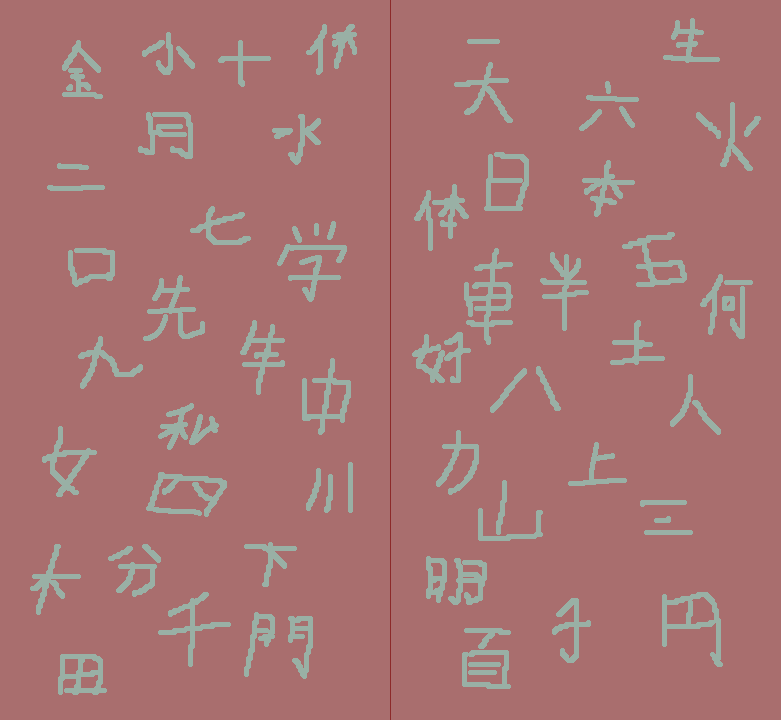 金 小 十 休
月 水
二
七
口 学
先
九 年 中
私
女 四 川
木 分 下
千 門
田
一 生
天 六 火
日 本
体
車 半 五 何
好 土
八 人
力 上
山 三
明
百 子 円